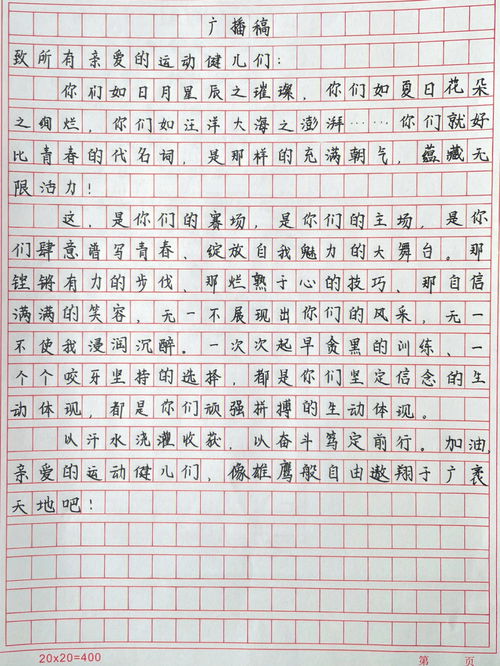 广播稿
致所有亲爱的运动健儿们：
你们如日月星辰之璀璨，你们如夏日花朵
之绚烂，你们如汪洋大海之澎湃……你们就好
比青春的代名词，是那样的充满朝气，蕴藏无
限活力！
这，是你们的赛场，是你们的主场，是你
们肆意谱写青春、绽放自我魅力的大舞台。那
铿锵有力的步伐、那烂熟于心的技巧、那自信
满满的笑容，无一不展现出你们的风采，无一
不使我浸润沉醉。一次次起早贪黑的训练、一
个个咬牙坚持的选择，都是你们坚定信念的生
动体现，都是你们顽强拼搏的生动体现。
以汗水浇灌收获，以奋斗笃定前行。加油，
亲爱的运动健儿们，像雄鹰般自由遨翔于广袤
天地吧！
20x20=400
第 页